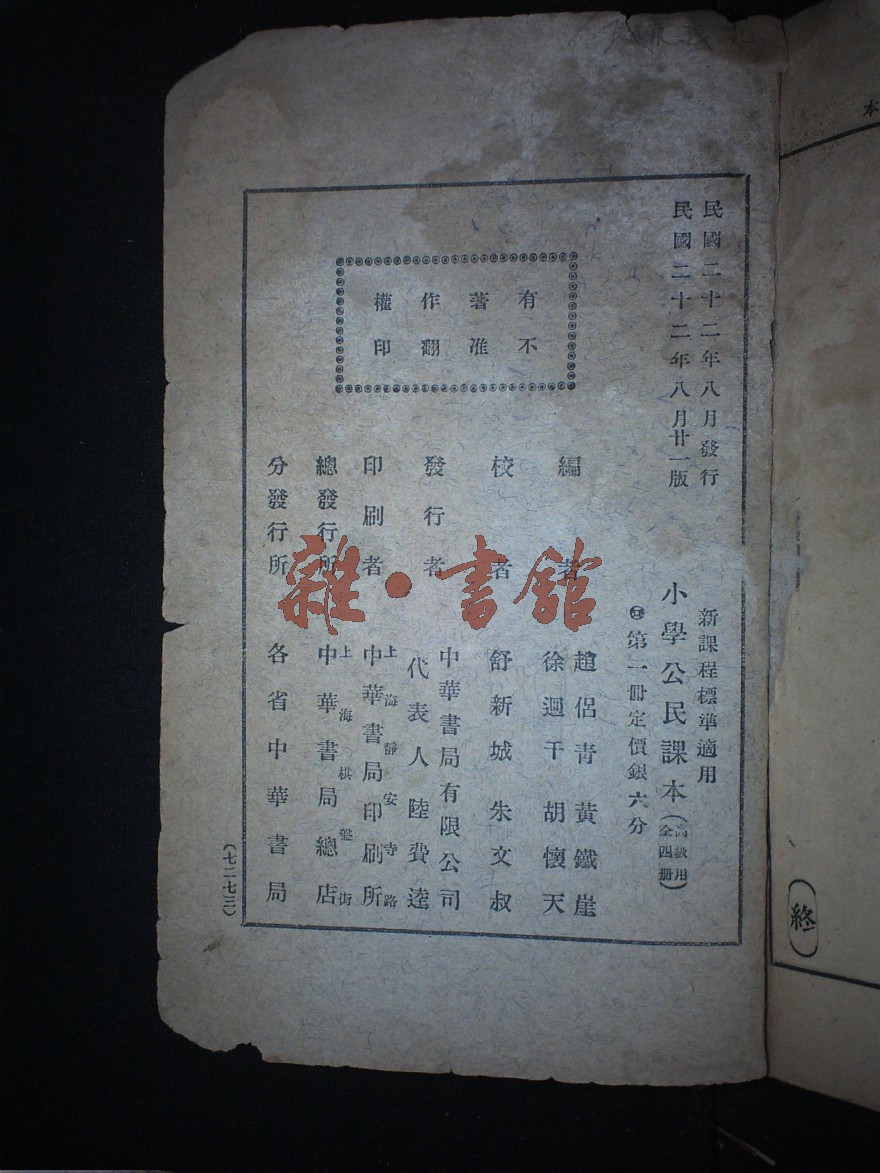 民國二十二年八月發行
民國二十二年八月廿一版
新課程標準適用
小學公民課本(高級用全四册)
第一冊定價銀六分
有著作權
不准翻印
編者
趙侶青 黃鐵崖
徐迥千 胡懷天
校者
舒新城 朱文叔
發行者
中華書局有限公司
代表人 陸費逵
印刷者
上海靜安寺路
中華書局印刷所
總發行所
上海棋盤街
中華書局總店
分發行所
各省中華書局
(七二七三)
雜·書館
本
終